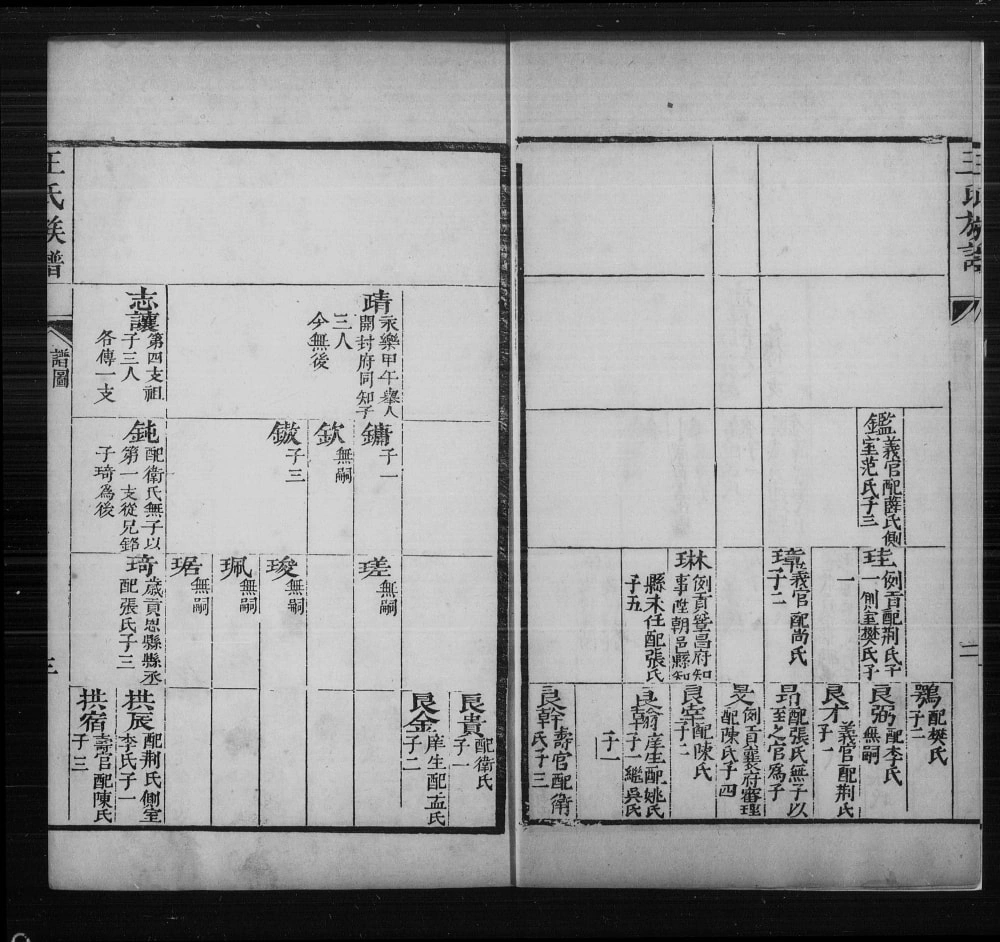 王氏族譜
二
鑑義官配薛氏側
室范氏子三
珪例貢配荆氏子
一側室樊氏子
一
璋義官配尚氏
子二
琳例貢暨昌府知
事陞朝邑縣知
縣未任配張氏
子五
鶚配樊氏
子二
良弼配李氏
無嗣
良才義官配荆氏
子一
昂配張氏無子以
至之官爲子
旻例貢襄府審理
配陳氏子四
良宰配陳氏
子二
良翰庠生配姚氏
子一繼吳氏
子一
良幹壽官配衛
氏子三
靖永樂甲午舉人
開封府同知子
三人
今無後
志讓第四支祖
子三人
各傳一支
鏞子一
欽無嗣
鏾子三
鈍配衛氏無子以
第一支從兄
子琦爲後
瑳無嗣
琁無嗣
珮無嗣
琚無嗣
琦歲貢恩縣縣丞
配張氏子三
良貴配衛氏
子一
良金庠生配孟氏
子二
拱辰配荆氏側室
李氏子一
拱宿壽官配陳氏
子三
王氏族譜
譜圖
三